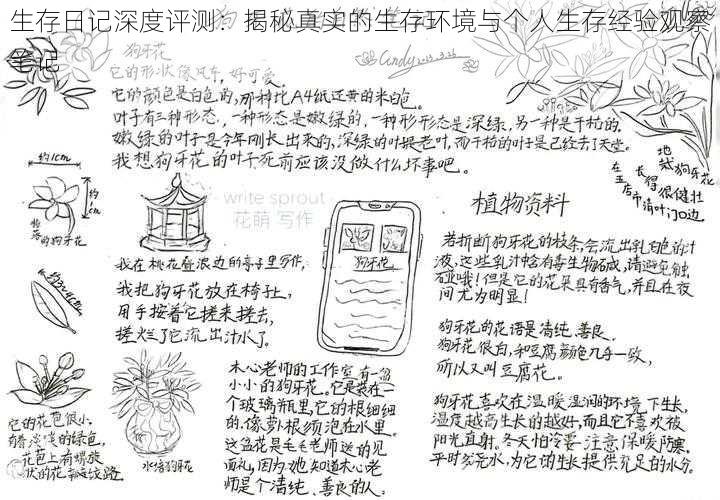 生存日记深度评测：揭秘真实的生存环境与个人生存经验观察
笔记
狗牙花
Cindy
它的形状像风车，好可爱。
它的颜色是白色的，那种比A4纸还黄的米白色。
叶子有三种形态，一种形态是嫩绿的，一种形态是深绿，另一种是干枯的。
嫩绿的叶子是今年刚长出来的，深绿的叶是老叶，而干枯的叶子是已经去了天堂。
我想狗牙花的叶子死前应该没做什么坏事吧。
地栽狗牙花
长得很健壮
在玉店市清叶门口边
约1cm
约1cm
的狗牙花
write sprout
花萌 写作
我在桃花叠浪边的亭子里写作，
我把狗牙花放在椅子上，
用手按着它搓来搓去，
搓烂了它流出汁水了。
狗牙花
植物资料
若折断狗牙花的枝条，会流出乳白色的汁
液，这些乳汁含有毒生物碱，请避免触
碰哦！但是它的花果具有香气，并且在夜
间尤为明显！
狗牙花的花语是清纯、善良。
狗牙花很白，和豆腐颜色几乎一致，
所以又叫豆腐花。
狗牙花喜欢在温暖湿润的环境下生长，
温度越高生长的越好，而且它不喜欢被
阳光直射。冬天怕冷要注意保暖防寒。
平时多浇水，为它的生长提供充足的水分。
它的花苞很小，
有着淡淡的绿色，
花苞上有螺旋
状的花瓣纹路。
水培狗牙花
木心老师的工作室有一盆
小小的狗牙花。它是装在一
个玻璃瓶里，它的根细细
的，像萝卜根须泡在水里。
这盆花是毛毛老师送的见
面礼，因为她知道木心老
师是个清纯、善良的人。